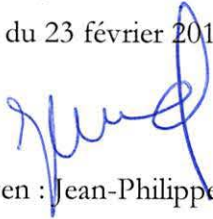 du 23 février 201
en : Jean-Philippe